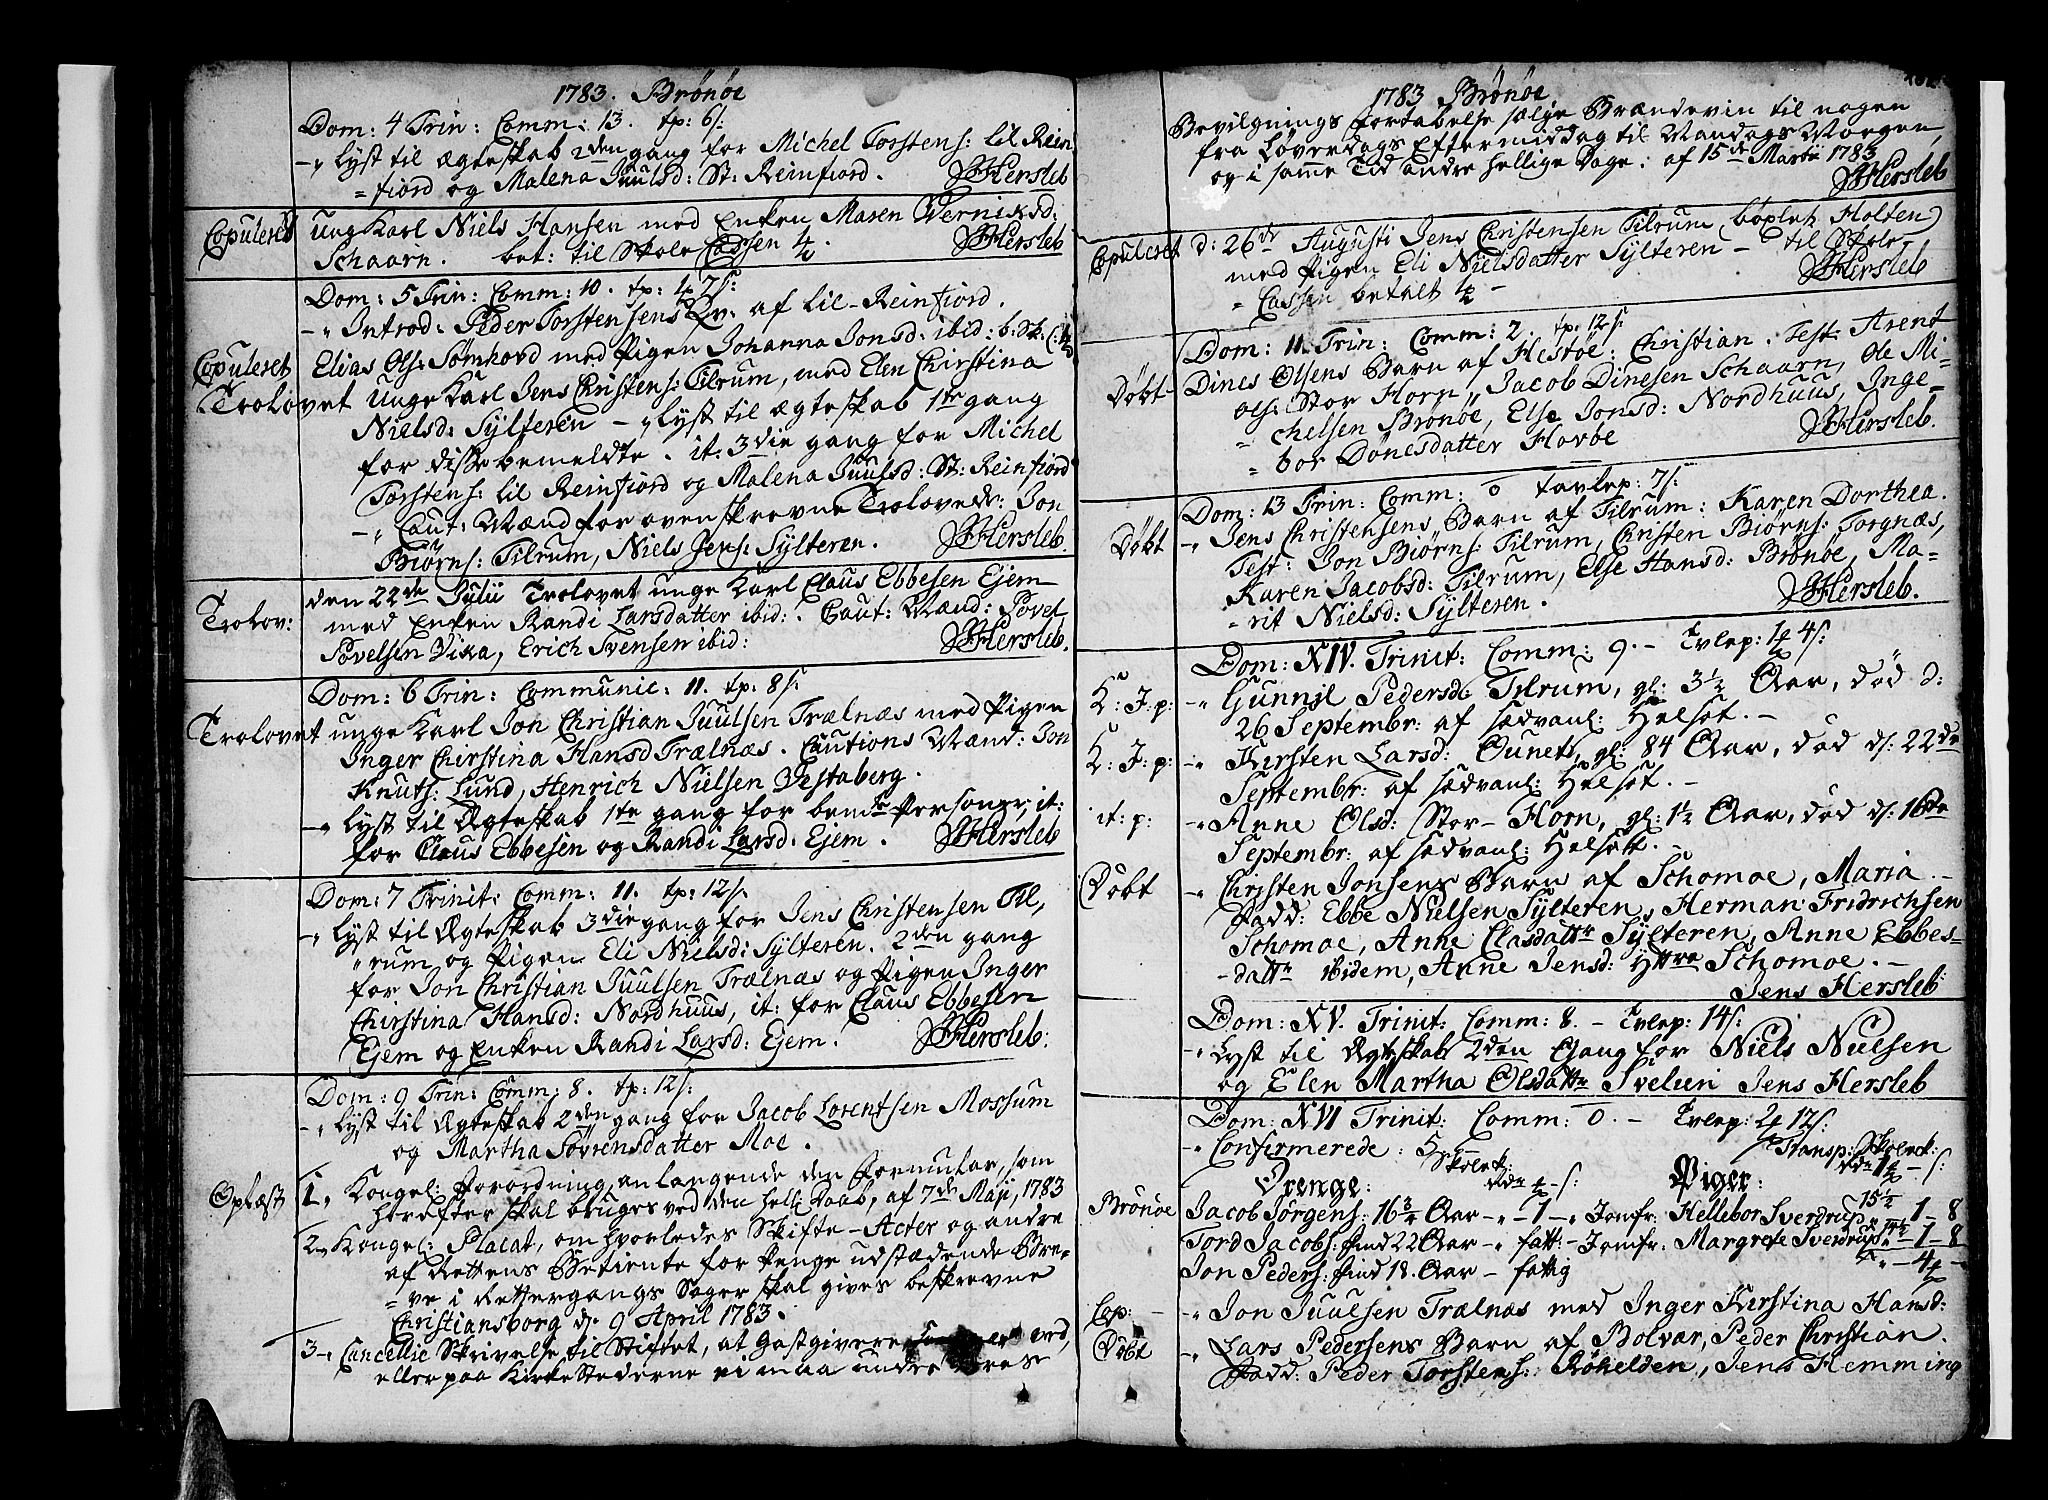 1783. Brønøe
Dom: 4 Trin: Comm: 13. tp: 6 s:
-„ Lyst til Ægteskab 2den gang for Michel Torstens: lil Rein
= fiord og Malena Juulsd: St: Reinfiord. JHersleb
Copuleret ung Karl Niels Hansen med Enken Maren Werniksd:
Schaarn. bet: til Skole Cassen JHersleb
Dom: 5 Trin: Comm: 10. tp: 7 s:
-„ Introd: Peder Torstensens Qv: af lil-Reinfiord.
Copuleret Elias Ols: Sømhovd med Pigen Johanna Jonsd: ibid: b: Sk:
Trolovet Unge Karl Jens Christens: Tilrum, med Elen Chirstina
Nielsd: Sylteren - „ Lyst til Ægteskab 1ste gang
for disse bemeldte. it: 3die gang for Michel
Torstens: lil Reinfiord og Malena Juulsd: St: Reinfiord
-„ Caut: Mænd for ovenskrevne Trolovede: Jon
Biørns: Tilrum, Niels Jens: Sylteren. JHersleb.
Trolov: den 22de Julii Trolovet unge Karl Claus Ebbesen Ejem
med Enken Randi Larsdatter ibid:. Caut: Mænd: Povel
Povelsen Vixa, Erich Svensen ibid: JHersleb.
Dom: 6 Trin: Communic: 11. tp: 8 s:
Trolovet unge Karl Jon Christian Juulsen Trælnæs med Pigen
Inger Chirstina Hansd Trælnæs. Cautions Mænd: Jon
Knuts: Lund, Henrich Nielsen Vestaberg.
-„ Lyst til Ægteskab 1ste gang for bemte Personer; it:
for Claus Ebbesen og Randi Larsd: Ejem. JHersleb
Dom: 7 Trinit: Comm: 11. tp: 12 s:
-„ Lyst til Ægteskab 3die gang for Jens Christensen Til,
„ rum og Pigen Eli Nielsd: Sylteren. 2den gang
for Jon Christian Juulsen Trælnæs og Pigen Inger
Chirstina Hansd: Nordhuus, it: for Claus Ebbesen
Ejem og Enken Randi Larsd: Ejem. JHersleb:
Dom: 9 Trin: Comm: 8. tp: 12 s:
-„ Lyst til Ægteskab 2den gang for Jacob Lorentsen Mossum
og Martha Sørensdatter Moe.
Oplæst 1„ Kongel: Forordning, anlangende den Formular, som
herefter skal bruges ved den hell: Daab, af 7de Maji, 1783
2„ Kongel: Placat, om hvorledes Skifte-Acter og andre
af Rettens Betiente for Penge udstædende Bre-
= ve i Rettergangs Sager skal gives beskrevne
Christiansborg d: 9 April 1783.
3-„ Cancellie Skrivelse til Stiftet, at Gastgivere ved,
eller paa KirkeStederne ei maa under deres
1783 Brønøe
Bevilgnings fortabelse sælge Brændevin til nogen
fra Løverdags Eftermiddag til Mandags Morgen,
og i samme Tid andre hellige Dage: af 15de Martii 1783
JHersleb
Copuleret d: 26de Augusti Jens Christensen Tilrum, boplet Holten
med Pigen Eli Nielsdatter Sylteren - til Skole-
„ Cassen betalt
Dom: 11 Trin: Comm: 2. tp: 12 s. JHersleb
Døbt - Dines Olsens Barn af Hestøe: Christian. Test: Arent
Ols: Stor Horn, Jacob Dinesen Schaarn, Ole Mi-
„ chelsen Brønøe, Else Jonsd: Nordhuus, Inge-
„ bor Dønesdatter Horvøe JHersleb.
Dom: 13 Trin: Comm: 0 tavlep: 7 s:
Døbt -„ Jens Christensens Barn af Tilrum: Karen Dorthea.
Test: Jon Biørns: Tilrum, Christen Biørns: Torgnæs,
Karen Jacobsd: Tilrum, Else Hansd: Brønøe, Ma-
„ rit Nielsd: Sylteren. JHersleb.
Dom: XIV. Trinit: Comm: 9. - Tvlep: 4 s:
K: J: p: -„ Gunnil Pedersd: Tilrum, gl: 3½ Aar, død d:
26 Septembr: af sædvanl: Helsot. -
K: J: p: -„ Kirsten Larsd: Ounets, gl: 84 Aar, død d: 22de
Septembr: af sædvanl: Helsot. -
it: p: -„ Anne Olsd: Stor-Horn, gl: 1½ Aar, død d: 16de
Septembr: af sædvanl: Helsott. -
Døbt -„ Christen Jonsens Barn af Schomoe, Maria. -
Fadd: Ebbe Nielsen Sylteren, Herman Fridrichsen
Schomoe, Anne Clasdattr Sylteren, Anne Ebbes-
- dattr ibidem, Anne Jensd: yttre Schomoe. -
Jens Hersleb
Dom: XV. Trinit: Comm: 8. - Tvlep: 14 s:
-„ Lyst til Ægteskab 2den Gang for Niels Nielsen
og Elen Martha Olsdattr Svelien Jens Hersleb
Dom: XVI Trinit: Comm: 0. - Tvlep: 2 12 s:
-„ Confirmerede: 5
Drenge: Piger:
Brønøe Jacob Jørgens: 16¾ Aar -„-1-„ Jomfr: Hellebor Sverdrup 15½ 1-8
Tord Jacobs: find 22 Aar -„ fatt: - Jomfr: Margrete Sverdrup 14½ -1-8
Jon Peders: find 18. Aar - fattig
Cop: -„ Jon Juulsen Trælnæs med Inger Kirstina Hansd:
Døbt -„ Lars Pedersens Barn af Bolvær, Peder Christian.
Fadd: Peder Torstens: Røhelden, Jens Hemming